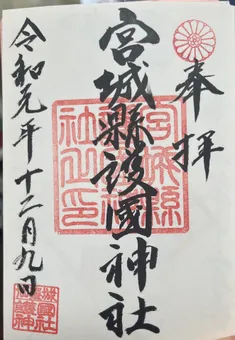 奉拝
宮城縣護國神社
令和元年十二月九日
宮城縣護國神社之印